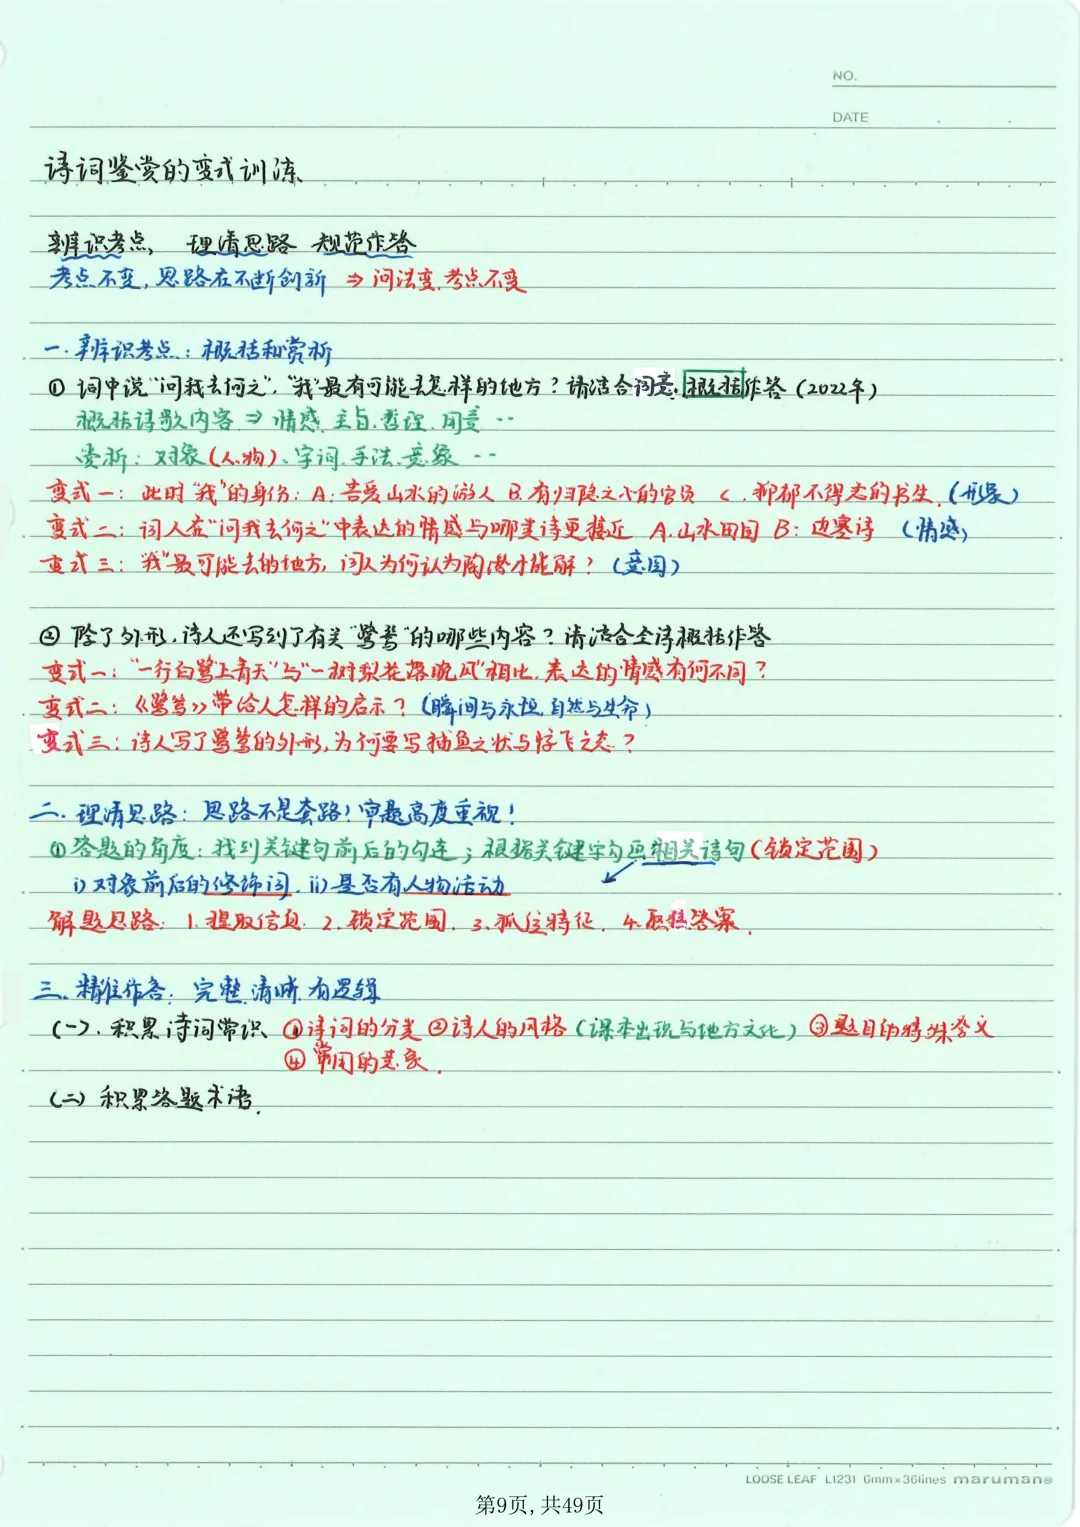 NO.
DATE
诗词鉴赏的变式训练
辨识考点、 理清思路 规范作答
考点不变,思路在不断创新 ⇒ 问法变.考点不变
一.辨识考点:概括和赏析
① 词中说“问我去何之”,“我”最有可能去怎样的地方?请结合词意,概括作答(2022年)
概括诗歌内容 ⇒ 情感.主旨.哲理.用意…
赏析:对象(人物)、字词.手法.意象…
变式一:此时“我”的身份:A:喜爱山水的游人 B.有归隐之心的官员 C.抑郁不得志的书生.(形象)
变式二:词人在“问我去何之”中表达的情感与哪类诗更接近 A.山水田园 B:边塞诗 (情感)
变式三:“我”最可能去的地方,词人为何认为陶潜才能解?(意图)
② 除了外形,诗人还写到了有关“鹭鸶”的哪些内容?请结合全诗概括作答
变式一:“一行白鹭上青天”与“一树梨花落晚风”相比,表达的情感有何不同?
变式二:《鹭鸶》带给人怎样的启示?(瞬间与永恒,自然与生命)
变式三:诗人写了鹭鸶的外形,为何要写捕鱼之状与惊飞之态?
二.理清思路:思路不是套路!审题高度重视!
①答题的角度:找到关键句前后的勾连;根据关键字句画相关诗句(锁定范围)
i)对象前后的修饰词. ii)是否有人物活动
解题思路:1.提取信息.2.锁定范围.3.抓住特征.4.概括答案.
三.精准作答:完整.清晰.有逻辑
(一).积累诗词常识 ①诗词的分类 ②诗人的风格(课本出现与地方文化) ③题目的特殊含义
④ 常用的意象.
(二)积累答题术语.
LOOSE LEAF L1231 6mm×36lines maruman®
第9页,共49页